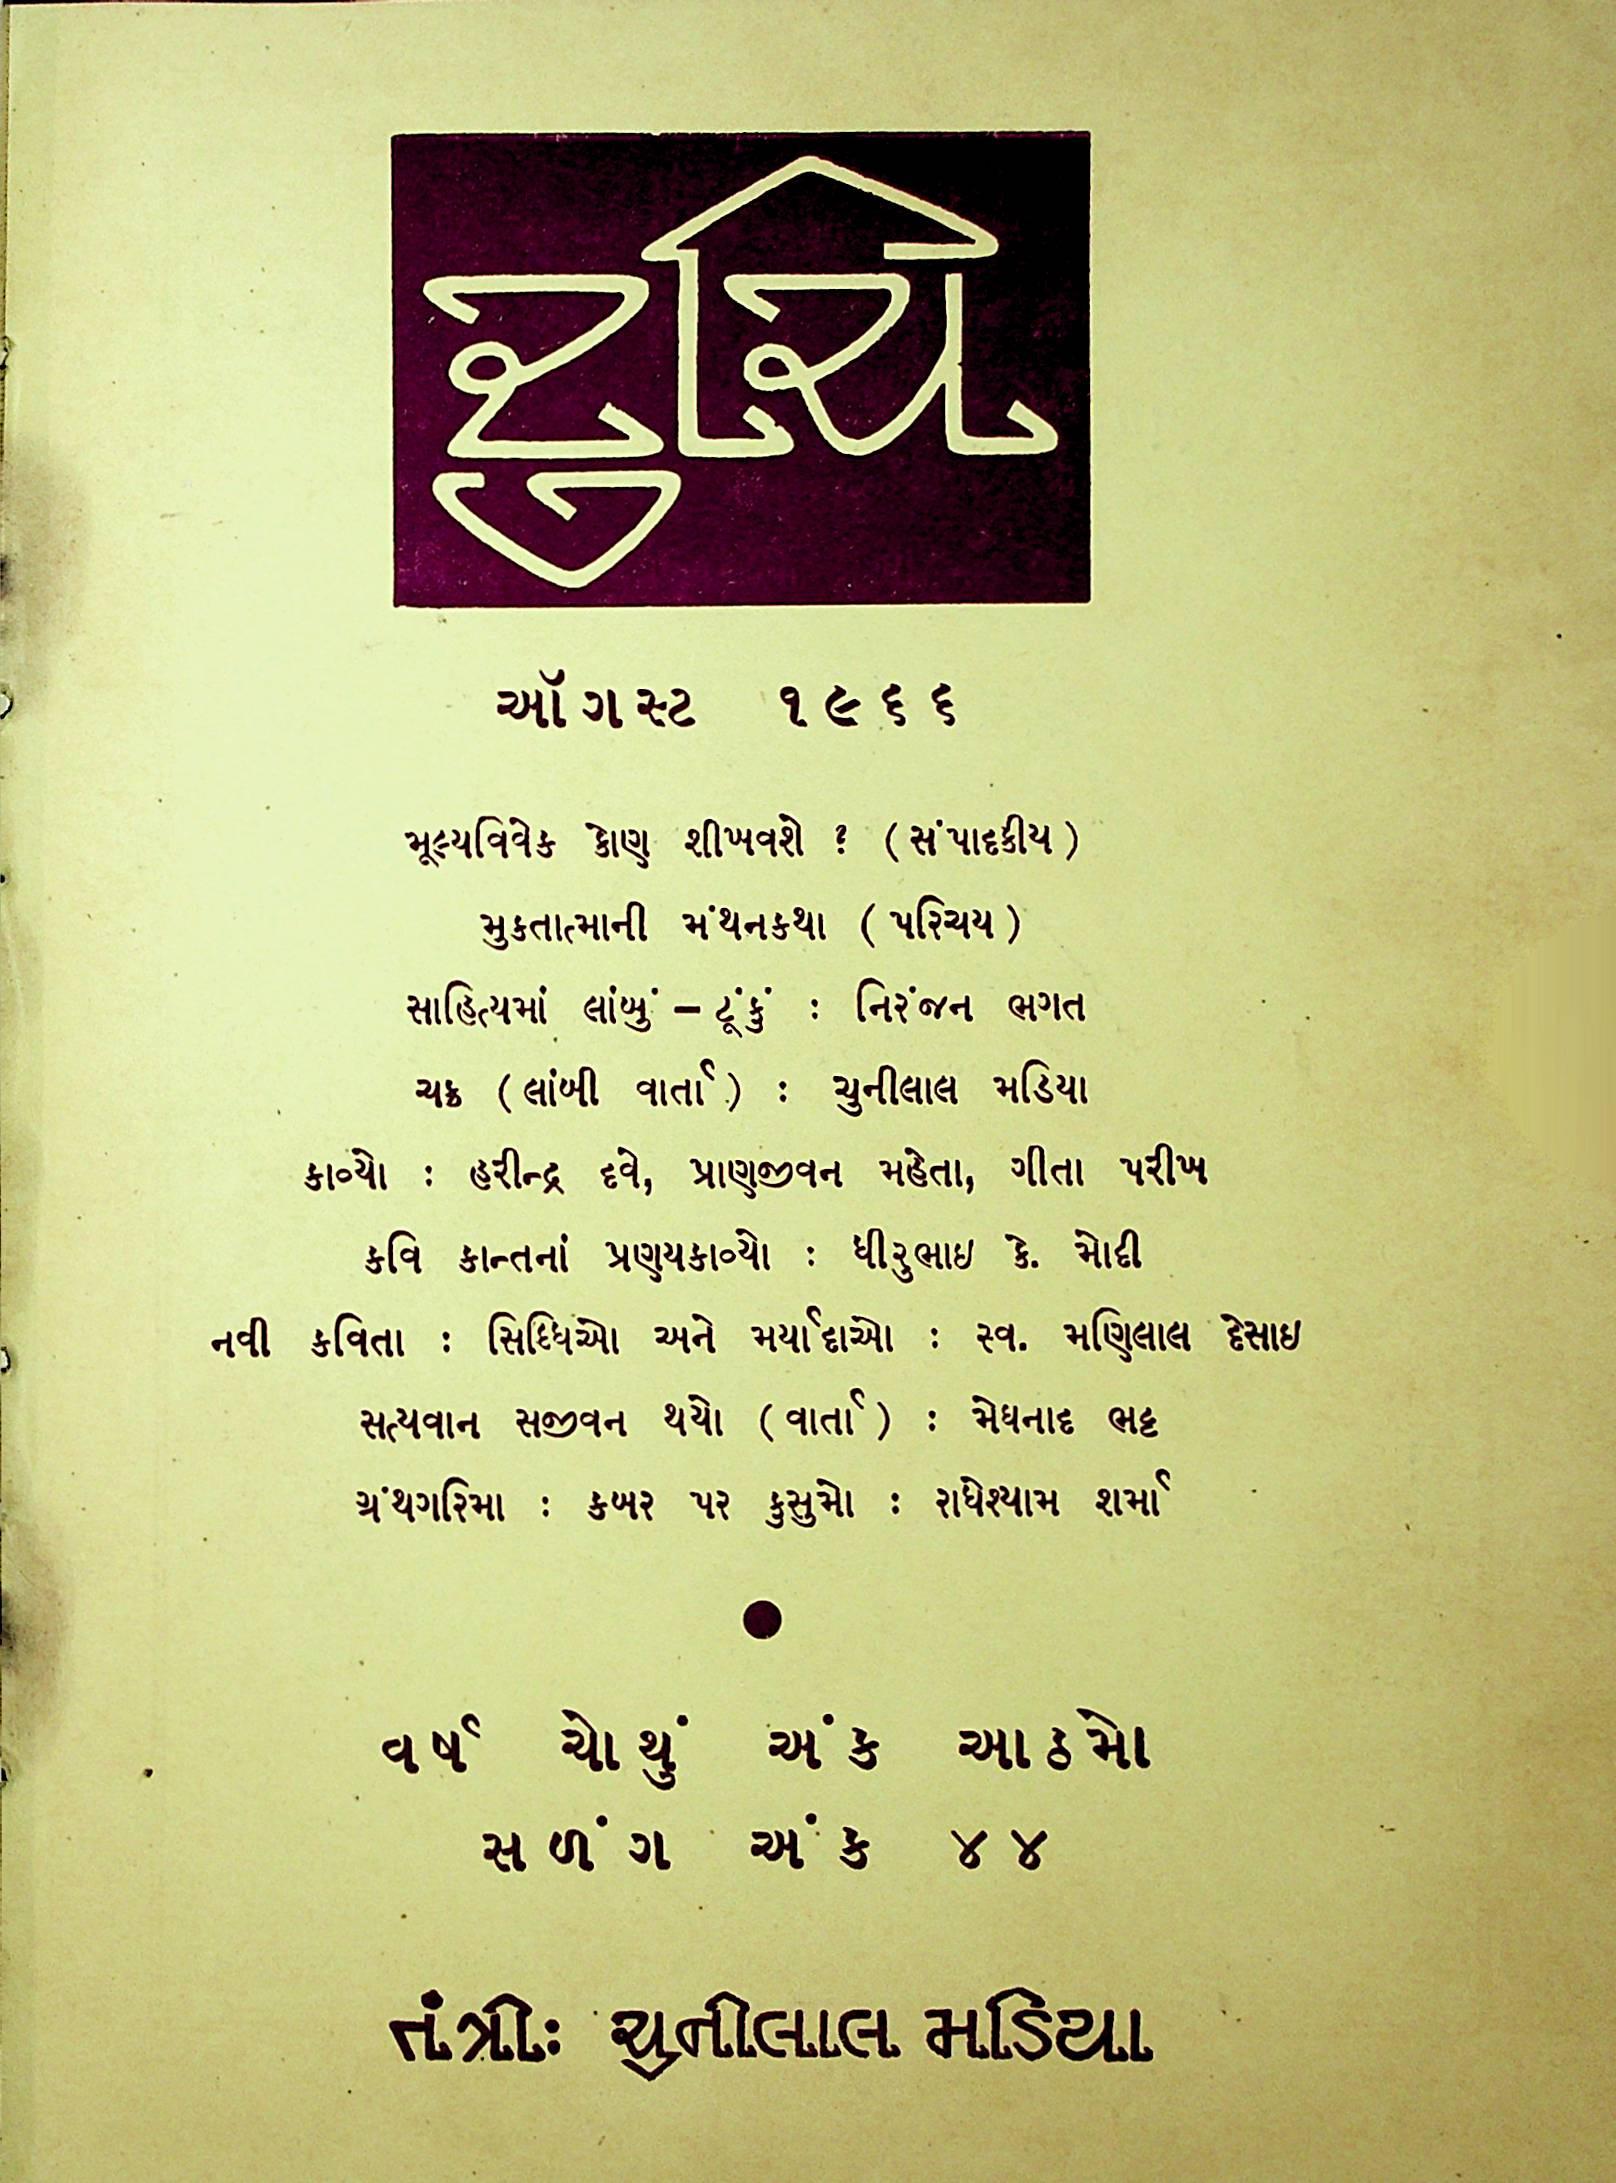 રુચિ
ઑગસ્ટ ૧૯૬૬
મૂલ્યવિવેક કોણ શીખવશે ? (સંપાદકીય)
મુક્તાત્માની મંથનકથા (પરિચય)
સાહિત્યમાં લાંબું – ટૂંકું : નિરંજન ભગત
ચક્ર (લાંબી વાર્તા) : ચુનીલાલ મડિયા
કાવ્યો : હરીન્દ્ર દવે, પ્રાણજીવન મહેતા, ગીતા પરીખ
કવિ કાન્તનાં પ્રણયકાવ્યો : ધીરુભાઇ કે. મોદી
નવી કવિતા : સિધ્ધિઓ અને મર્યાદાઓ : સ્વ. મણિલાલ દેસાઇ
સત્યવાન સજીવન થયો (વાર્તા) : મેઘનાદ ભટ્ટ
ગ્રંથગરિમા : કબર પર કુસુમો : રાધેશ્યામ શર્મા
વર્ષ ચોથું અંક આઠમો
સળંગ અંક ૪૪
તંત્રીઃ ચુનીલાલ મડિયા